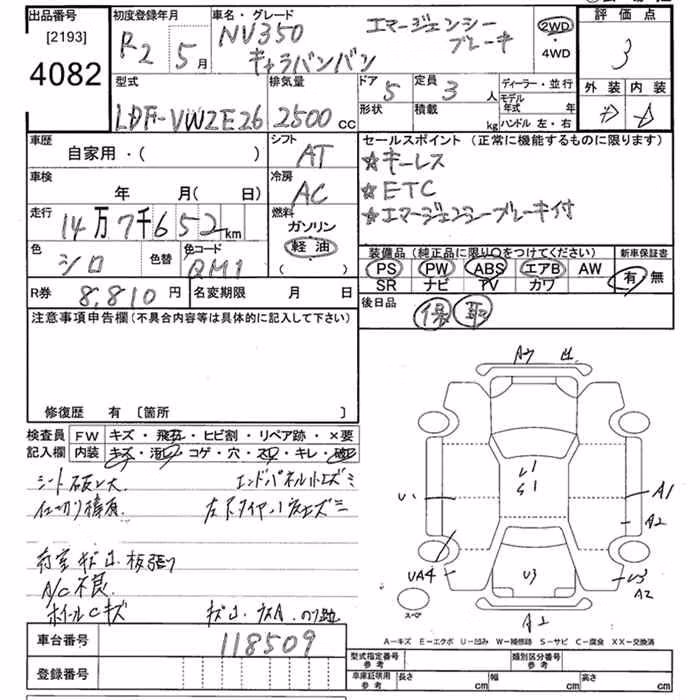 出品番号
[2193]
4082
初度登録年月
R2 5月
車名・グレード
NV350
キャラバンバン
エマージェンシー
ブレーキ
2WD
・
4WD
評価点
3
外装 内装
型式
LDF-VW2E26
排気量
2500 cc
ドア 5
形状
定員 3 人
積載 kg
ディーラー・並行
モデル年式 年
ハンドル 左・右
車歴
自家用・( )
シフト
AT
車検
年 月( 日)
冷房
AC
走行
14万7千652km
燃料
ガソリン
軽油
( )
色
シロ
色替
色コード
QM1
セールスポイント(正常に機能するものに限ります)
☆キーレス
☆ETC
☆エマージェンシーブレーキ付
装備品(純正品に限り○をつけてください)
PS PW ABS エアB AW
SR ナビ TV カワ
新車保証書
有・無
R券 8,810円
名変期限 月 日
後日品
保 取
注意事項申告欄(不具合内容等は具体的に記入して下さい)
修復歴 有 [箇所 ]
検査員
記入欄
FW キズ・飛石・ヒビ割・リペア跡・×要
内装 キズ・コゲ・穴・キレ・
シート破レ大
エンドパネル小キズミ
荷室キズ凹、板張り
A/C不良
ホイールCキズ
A7
U1
S1
U1
A1
A2
UA4
U3
U3
A2
A1
スペア
A-キズ E-エクボ U-凹み W-補修跡 S-サビ C-腐食 XX-交換済
車台番号
118509
登録番号
型式指定番号
参考
類別区分番号
参考
車庫証明用
参考
長さ cm
幅 cm
高さ cm